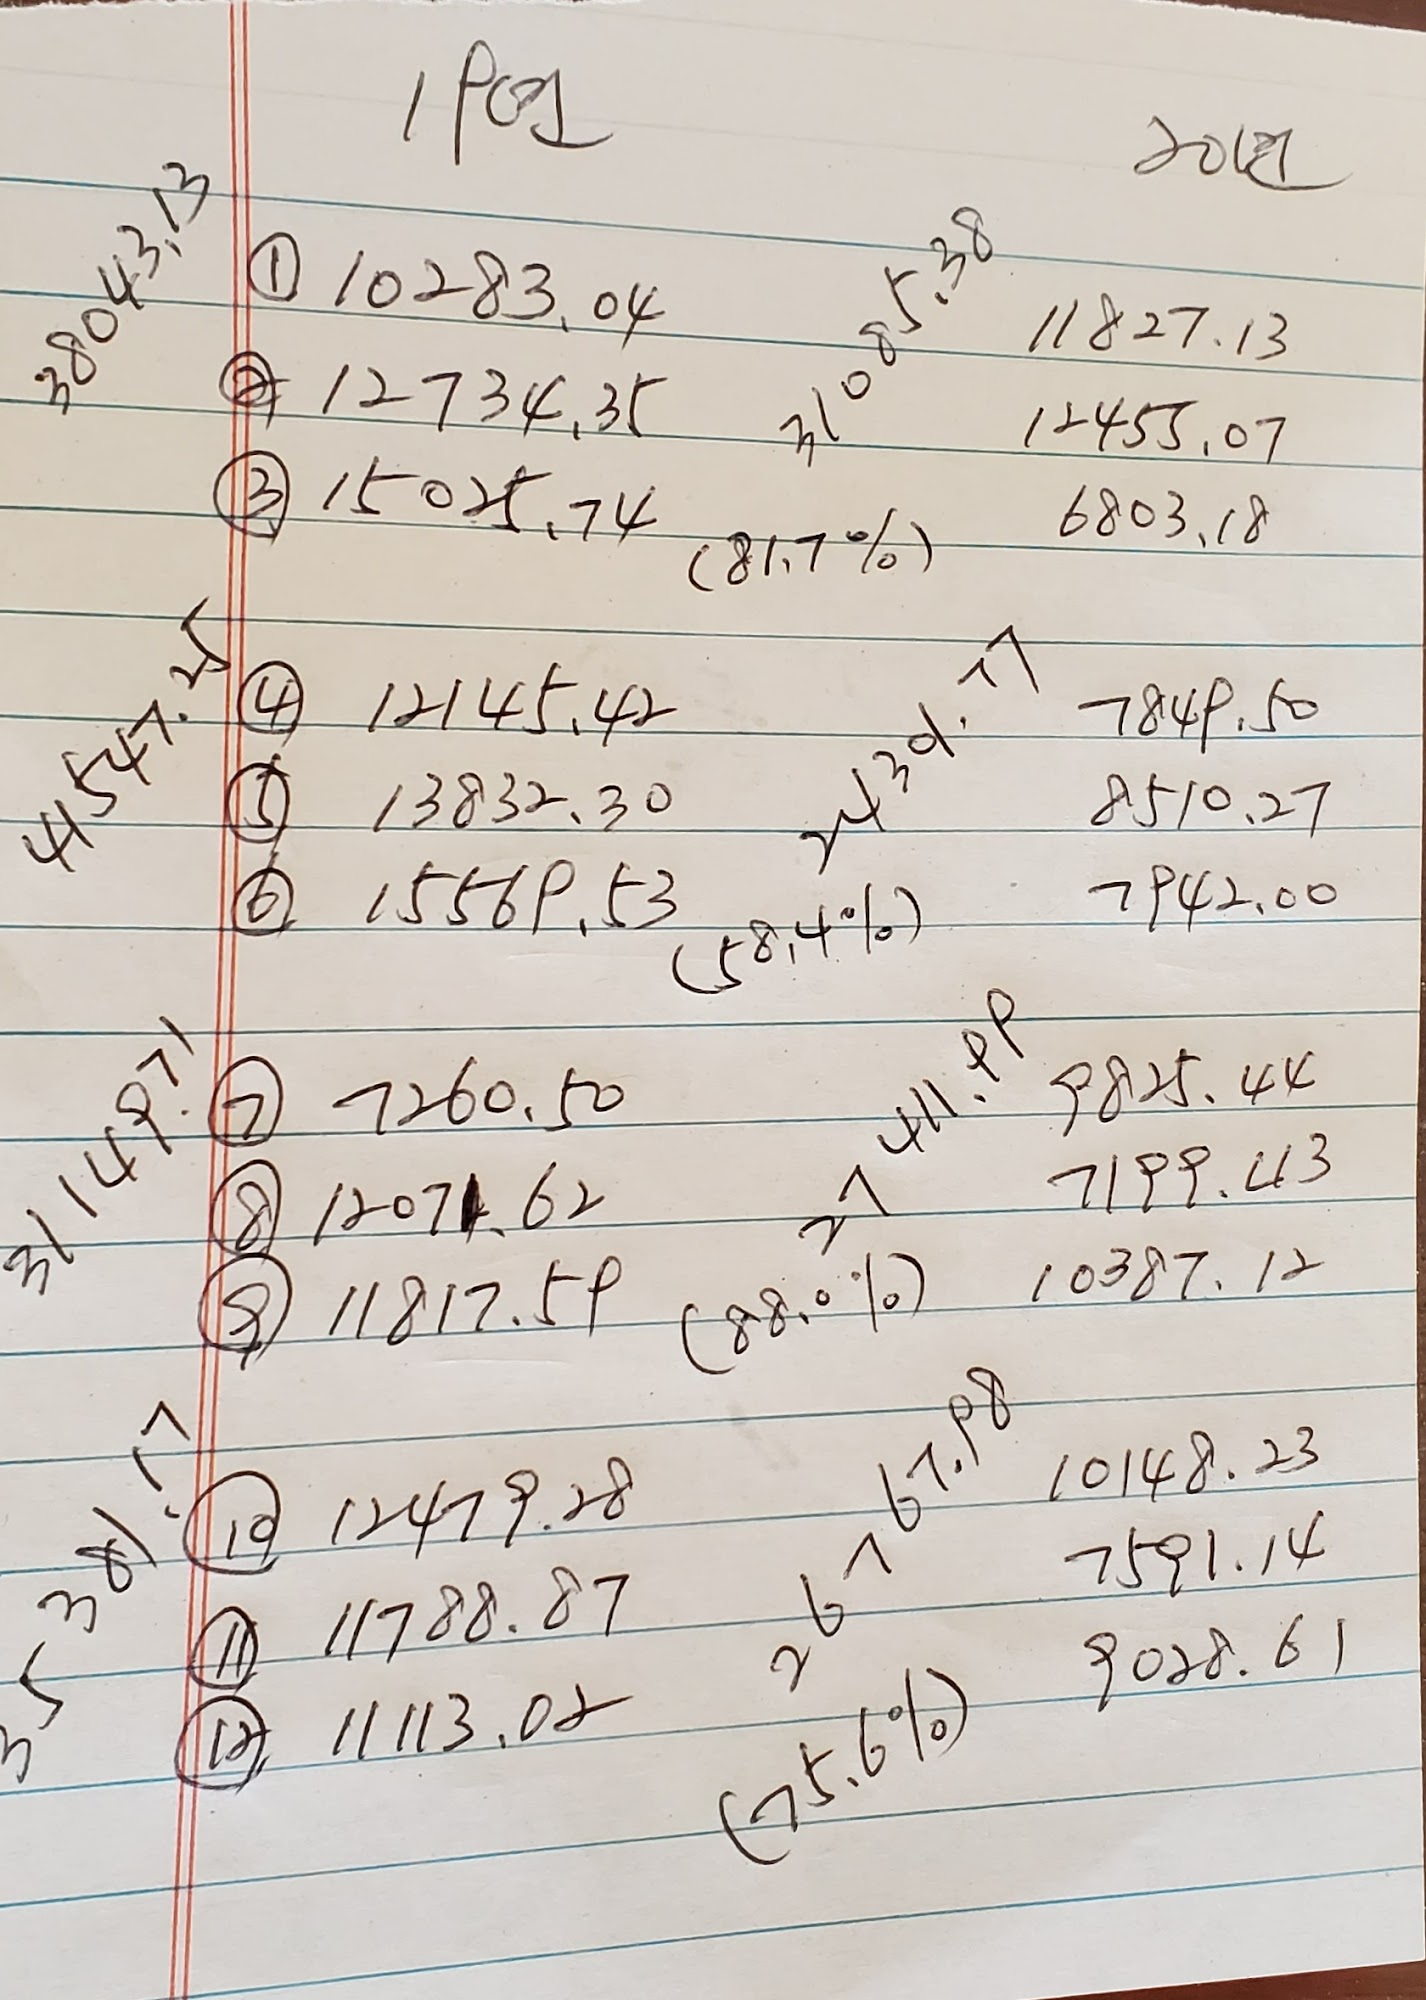 19년 20년
38043.13 31085.38
① 10283.04 11827.13
② 12734.35 12455.07
③ 15025.74 (81.7%) 6803.18
41547.25 24301.77
④ 12145.42 7849.50
⑤ 13832.30 8510.27
⑥ 15569.53 (58.4%) 7942.00
31149.71 27411.99
⑦ 7260.50 9825.44
⑧ 12071.62 7199.43
⑨ 11817.59 (88.0%) 10387.12
35381.17 26767.98
⑩ 12479.28 10148.23
⑪ 11788.87 7591.14
⑫ 11113.02 (75.6%) 9028.61